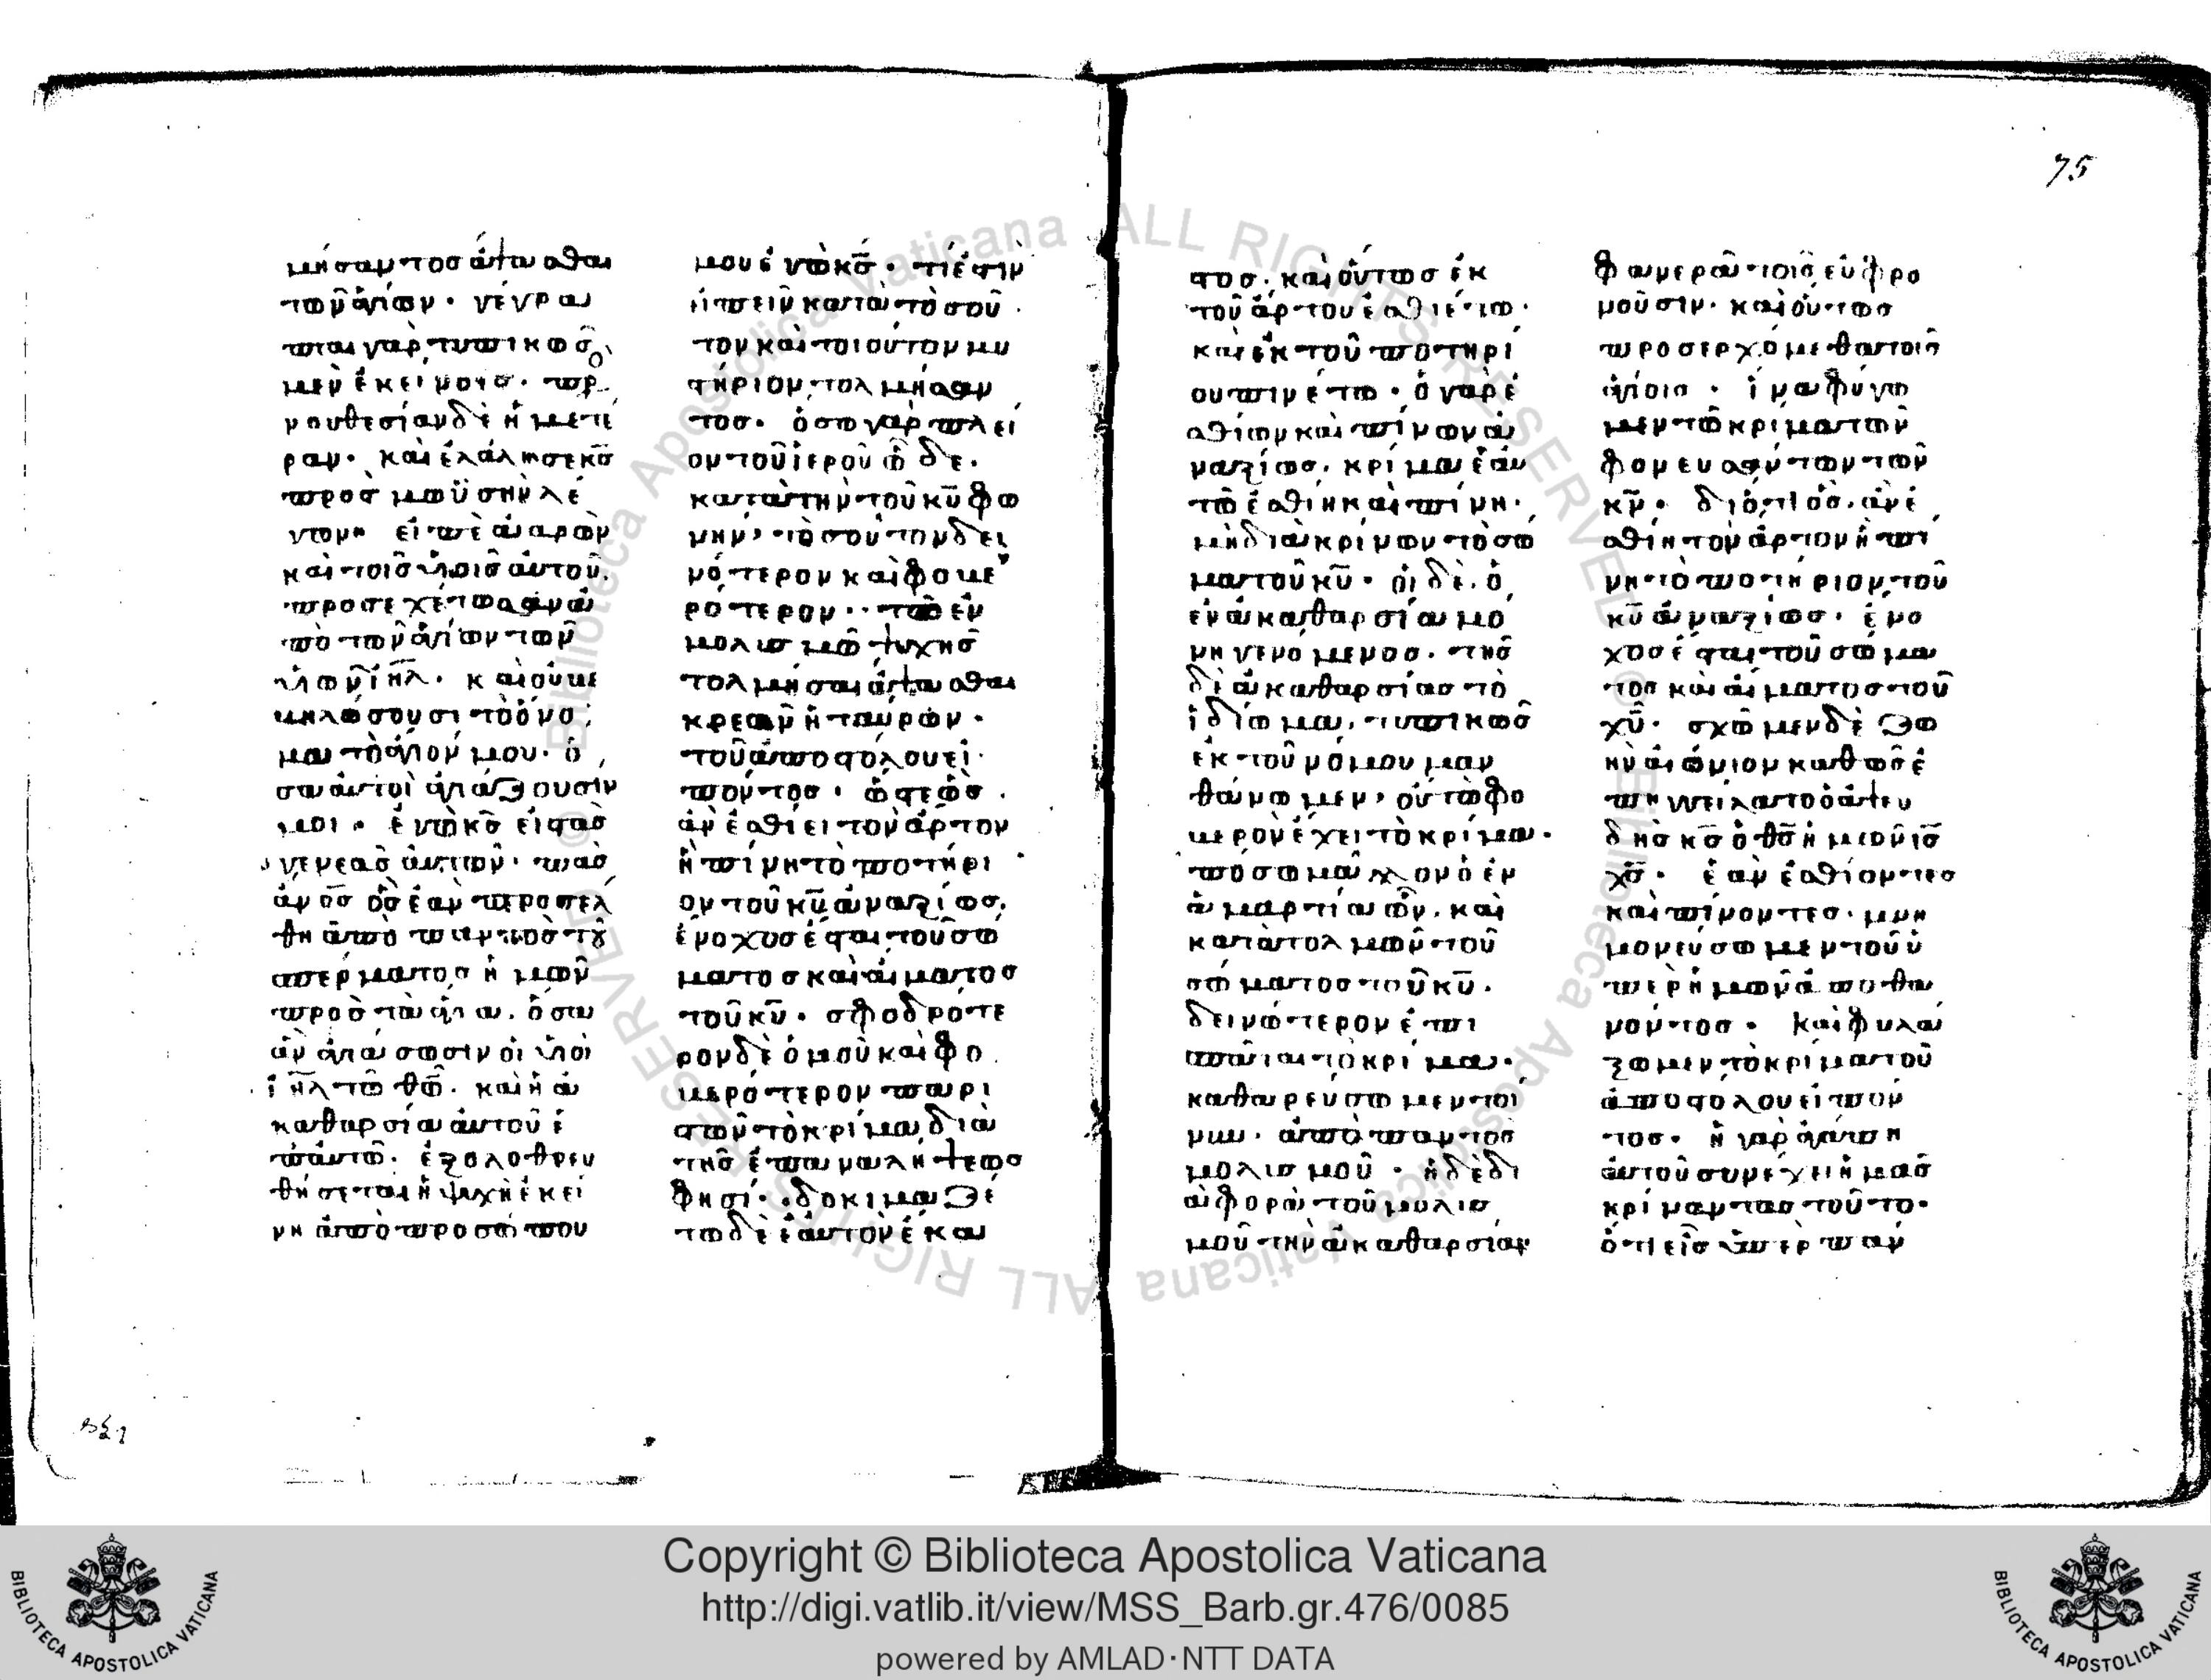 μήσαντος ἅψασθαι
τῶν ἁγίων· γέγρα
πται γὰρ τυπικῶς
μὲν ἐκείνοις· πρ
νουθεσίαν δὲ ἡμετέ
ραν· καὶ ἐλάλησε κς̄
πρὸς μωϋσῆν λέ
γων· εἰπὲ ἀαρὼν
καὶ τοῖς υἱοῖς αὐτοῦ·
προσεχέτωσαν ἀ
πὸ τῶν ἁγίων τῶν
υἱῶν ιη̄λ· καὶ οὐ βε
βηλώσουσι τὸ ὄνο
μα τὸ ἅγιόν μου· ὅ
σα αὐτοὶ ἁγιάζουσίν
μοι· ἐγὼ κς̄ εἰς τὰς
γενεὰς αὐτῶν· πᾶς
ἄνος̄ ὃς ἐὰν προσέλ
θῃ ἀπὸ παντὸς τοῦ
σπέρματος ἡμῶν
πρὸς τὰ ἅγια· ὅσα
ἂν ἁγιάσωσιν οἱ υἱοὶ
ιη̄λ τῷ θω̄· καὶ ἡ ἀ
καθαρσία αὐτοῦ ἐ
π' αὐτῷ· ἐξολοθρευ
θήσεται ἡ ψυχὴ ἐκεί
νη ἀπὸ προσώπου
μου ἐγὼ κς̄· τί ἐστιν
εἰπεῖν κατὰ τοσοῦ
τον καὶ τοιοῦτον μυ
στήριον τολμήσαν
τος· ὅσῳ γὰρ πλεῖ
ον τοῦ ἱεροῦ ὧδε·
κατὰ τὴν τοῦ κῡ φω
νήν· τοσοῦτον δει
νότερον καὶ φοβε
ρώτερον· τὸ ἐν
μολισμῷ ψυχῆς
τολμῆσαι ἅψασθαι
κρεῶν ἢ ταύρων·
τοῦ ἀποστόλου εἰ
πόντος· ὥστε ὃς
ἂν ἐσθίει τὸν ἄρτον
ἢ πίνῃ τὸ ποτήρι
ον τοῦ κῡ ἀναξίως·
ἔνοχος ἔσται τοῦ σώ
ματος καὶ αἵματος
τοῦ κῡ· σφοδρότε
ρον δὲ ὁμοῦ καὶ φο
βερώτερον παρι
στῶν τὸ κρίμα διὰ
τῆς ἐπαναλήψεως
φησί· δοκιμαζέ
τω δὲ ἑαυτὸν ἕκα
75
στος· καὶ οὕτως ἐκ
τοῦ ἄρτου ἐσθιέτω·
καὶ ἐκ τοῦ ποτηρί
ου πινέτω· ὁ γὰρ ἐ
σθίων καὶ πίνων ἀ
ναξίως· κρίμα ἑαυ
τῷ ἐσθίη καὶ πίνη·
μὴ διακρίνων τὸ σῶ
μα τοῦ κῡ· εἰ δὲ ὁ
ἐν ἀκαθαρσία μό
νη γενόμενος· τῆς
δὲ ἀκαθαρσίας τὸ
ἰδίωμα· τυπικῶς
ἐκ τοῦ νόμου μαν
θάνωμεν· οὕτω φο
βερὸν ἔχει τὸ κρίμα·
πόσω μᾶλλον ὁ ἐν
ἁμαρτία ὤν· καὶ
κατατολμῶν τοῦ
σώματος τοῦ κῡ·
δεινότερον ἐπι
σπᾶται τὸ κρίμα·
καθαρεύσωμεν τοί
νυν· ἀπὸ παντὸς
μολισμοῦ· ἡ δὲ δι
αφορὰ τοῦ μολισ
μοῦ τὴν ἀκαθαρσίαν
φανερὰ τοῖς εὐφρο
νοῦσιν· καὶ οὕτως
προσερχώμεθα τοῖς
ἁγίοις· ἵνα φύγω
μεν τὸ κρίμα τῶν
φονευσάντων τὸν
κν̄· διότι ὃς ἂν ἐ
σθίη τὸν ἄρτον ἢ πί
νη τὸ ποτήριον τοῦ
κῡ ἀναξίως· ἔνο
χος ἔσται τοῦ σώμα
τος καὶ αἵματος τοῦ
χῡ· σχῶμεν δὲ ζω
ὴν αἰώνιον καθὼς ἐ
πηγγείλατο ὁ ἀψευ
δὴς κς̄ ὁ θς̄ ἡμῶν ις̄
χς̄· ἐὰν ἐσθίοντες
καὶ πίνοντες· μνη
μονεύσωμεν τοῦ ὑ
πὲρ ἡμῶν ἀποθα
νόντος· καὶ φυλά
ξωμεν τὸ κρίμα τοῦ
ἀποστόλου εἰπόν
τος· ἡ γὰρ ἀγάπη
αὐτοῦ συνέχει ἡμᾶς
κρίναντας τοῦτο·
ὅτι εἷς ὑπὲρ παν
Copyright © Biblioteca Apostolica Vaticana
http://digi.vatlib.it/view/MSS_Barb.gr.476/0085
powered by AMLAD·NTT DATA
BIBLIOTECA APOSTOLICA VATICANA
BIBLIOTECA APOSTOLICA VATICANA